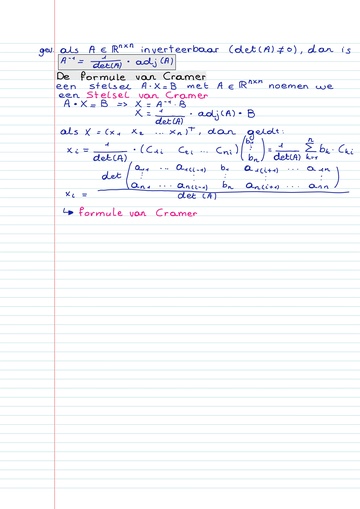 gev. als A ∈ ℝⁿˣⁿ inverteerbaar (det(A) ≠ 0), dan is
A⁻¹ = 1/det(A) · adj(A)
De Formule van Cramer
een stelsel A·X = B met A ∈ ℝⁿˣⁿ noemen we
een Stelsel van Cramer
A·X = B => X = A⁻¹·B
X = 1/det(A) · adj(A) · B
als X = (x₁ x₂ ... xₙ)ᵀ, dan geldt:
xᵢ = 1/det(A) · (C₁ᵢ C₂ᵢ ... Cₙᵢ) (b₁ ⋮ bₙ) = 1/det(A) ∑ₖ₌₁ⁿ bₖ · Cₖᵢ
xᵢ = det (a₁₁ ... a₁₍ᵢ₋₁₎ b₁ a₁₍ᵢ₊₁₎ ... a₁ₙ ⋮ ⋮ ⋮ ⋮ ⋮ aₙ₁ ... aₙ₍ᵢ₋₁₎ bₙ aₙ₍ᵢ₊₁₎ ... aₙₙ) / det(A)
↳ formule van Cramer